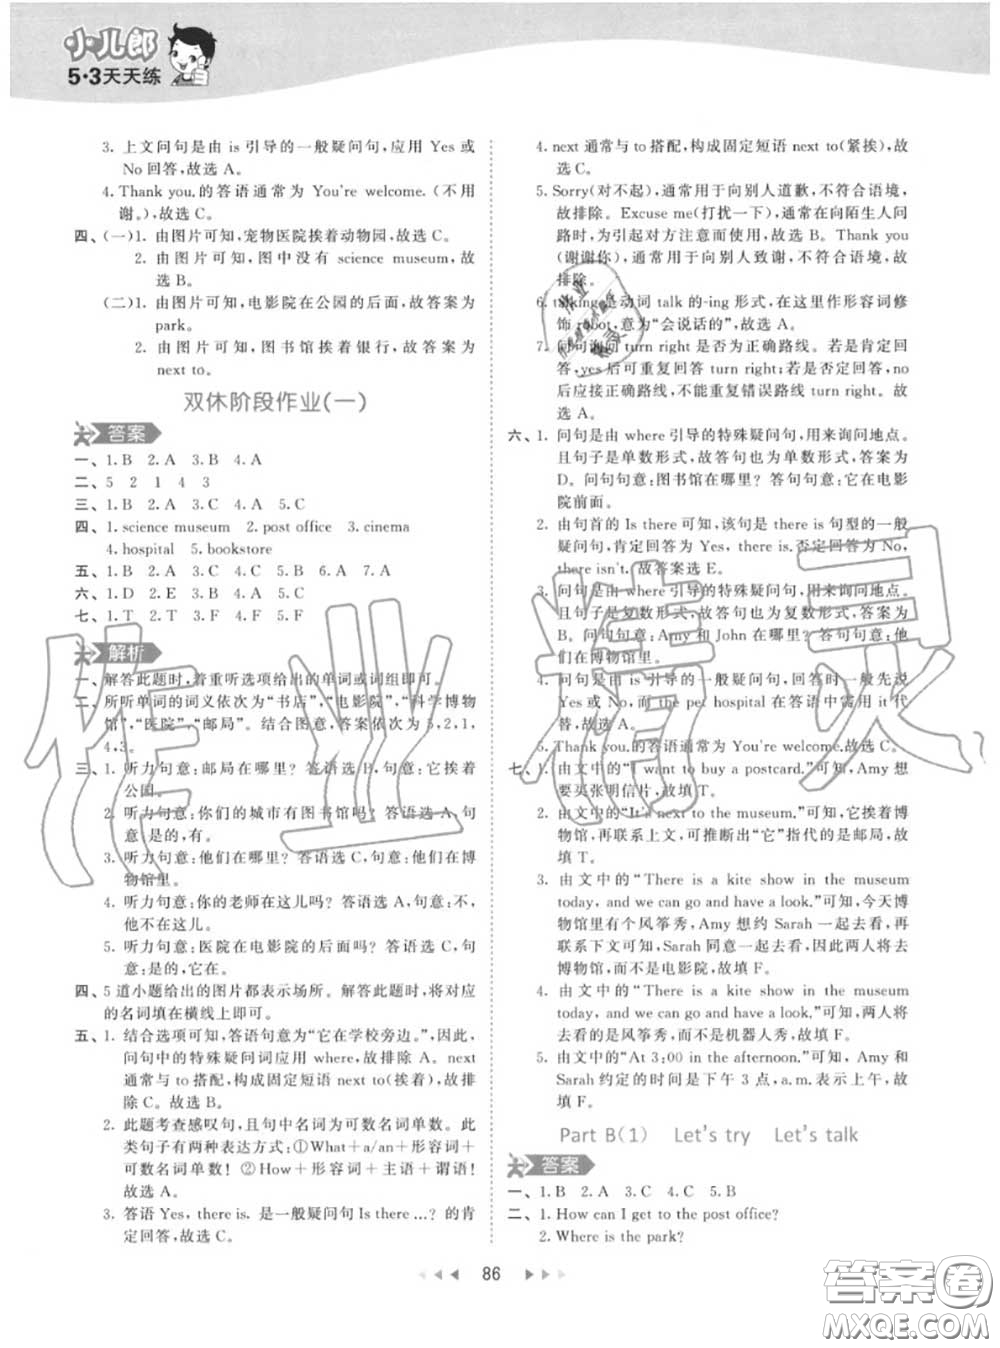 小儿郎
5·3天天练
3. 上文问句是由 is 引导的一般疑问句,应用 Yes 或
No 回答,故选 A。
4. Thank you.的答语通常为 You're welcome.(不用
谢。),故选 C。
四、(一)1. 由图片可知,宠物医院挨着动物园,故选 C。
2. 由图片可知,图中没有 science museum,故
选 B。
(二)1. 由图片可知,电影院在公园的后面,故答案为
park。
2. 由图片可知,图书馆挨着银行,故答案为
next to。
双休阶段作业(一)
答案
一、1. B 2. A 3. B 4. A
二、5 2 1 4 3
三、1. B 2. A 3. C 4. A 5. C
四、1. science museum 2. post office 3. cinema
4. hospital 5. bookstore
五、1. B 2. A 3. C 4. C 5. B 6. A 7. A
六、1. D 2. E 3. B 4. A 5. C
七、1. T 2. T 3. F 4. F 5. F
解析
一、解答此题时,着重听选项给出的单词或词组即可。
二、所听单词的词义依次为“书店”,“电影院”,“科学博物
馆”,“医院”,“邮局”。结合图意,答案依次为 5,2,1,
4,3。
三、1. 听力句意:邮局在哪里? 答语选 B,句意:它挨着
公园。
2. 听力句意:你们的城市有图书馆吗? 答语选 A,句
意:是的,有。
3. 听力句意:他们在哪里? 答语选 C,句意:他们在博
物馆里。
4. 听力句意:你的老师在这儿吗? 答语选 A,句意:不,
他不在这儿。
5. 听力句意:医院在电影院的后面吗? 答语选 C,句
意:是的,它在。
四、5 道小题给出的图片都表示场所。解答此题时,将对应
的名词填在横线上即可。
五、1. 结合选项可知,答语句意为“它在学校旁边。”,因此,
问句中的特殊疑问词应用 where,故排除 A。next
通常与 to 搭配,构成固定短语 next to(挨着),故排
除 C。故选 B。
2. 此题考查感叹句,且句中名词为可数名词单数。此
类句子有两种表达方式:①What+a/an+形容词+
可数名词单数! ②How+形容词+主语+谓语!
故选 A。
3. 答语 Yes, there is. 是一般疑问句 Is there ...? 的肯
定回答,故选 C。
4. next 通常与 to 搭配,构成固定短语 next to(紧挨),故
选 C。
5. Sorry(对不起),通常用于向别人道歉,不符合语境,
故排除。Excuse me(打扰一下),通常在向陌生人问
路时,为引起对方注意而使用,故选 B。Thank you
(谢谢你),通常用于向别人致谢,不符合语境,故
排除。
6. talking 是动词 talk 的-ing 形式,在这里作形容词修
饰 robot,意为“会说话的”,故选 A。
7. 问句询问 turn right 是否为正确路线。若是肯定回
答,yes 后可重复回答 turn right;若是否定回答,no
后应接正确路线,不能重复错误路线 turn right。故
选 A。
六、1. 问句是由 where 引导的特殊疑问句,用来询问地点。
且句子是单数形式,故答句也为单数形式,答案为
D。问句句意:图书馆在哪里? 答句句意:它在电影
院前面。
2. 由句首的 Is there 可知,该句是 there is 句型的一般
疑问句,肯定回答为 Yes, there is.否定回答为 No,
there isn't.故答案选 E。
3. 问句是由 where 引导的特殊疑问句,用来询问地点。
且句子是复数形式,故答句也为复数形式,答案为
B。问句句意:Amy 和 John 在哪里? 答句句意:他们
在博物馆里。
4. 问句是由 is 引导的一般疑问句,回答时一般先说
Yes 或 No,而 the pet hospital 在答语中需用 it 代
替,故选 A。
5. Thank you.的答语通常为 You're welcome.故选 C。
七、1. 由文中的“I want to buy a postcard.”可知,Amy 想
要买张明信片,故填 T。
2. 由文中的“It's next to the museum.”可知,它挨着博
物馆,再联系上文,可推断出“它”指代的是邮局,故
填 T。
3. 由文中的“There is a kite show in the museum
today, and we can go and have a look.”可知,今天博
物馆里有个风筝秀,Amy 想约 Sarah 一起去看,再
联系下文可知,Sarah 同意一起去看,因此两人将去
博物馆,而不是电影院,故填 F。
4. 由文中的“There is a kite show in the museum
today, and we can go and have a look.”可知,两人将
去看的是风筝秀,而不是机器人秀,故填 F。
5. 由文中的“At 3:00 in the afternoon.”可知,Amy 和
Sarah 约定的时间是下午 3 点,a.m.表示上午,故
填 F。
Part B(1) Let's try Let's talk
答案
一、1. B 2. A 3. C 4. C 5. B
二、1. How can I get to the post office?
2. Where is the park?
86
作业精灵
答案圈
MXQE.COM